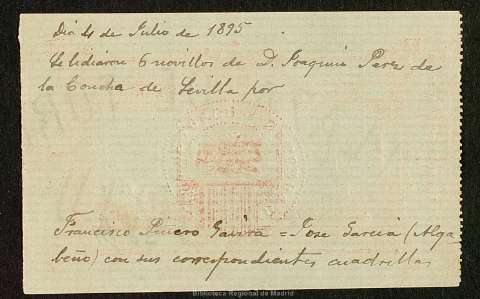 Dia 4 de Julio de 1895
Se lidiaron 6 novillos de D. Joaquin Perez de
la Concha de Sevilla por
Francisco Piñero Gavira = Jose Garcia (Alga
beño) con sus correspondientes cuadrillas
Biblioteca Regional de Madrid